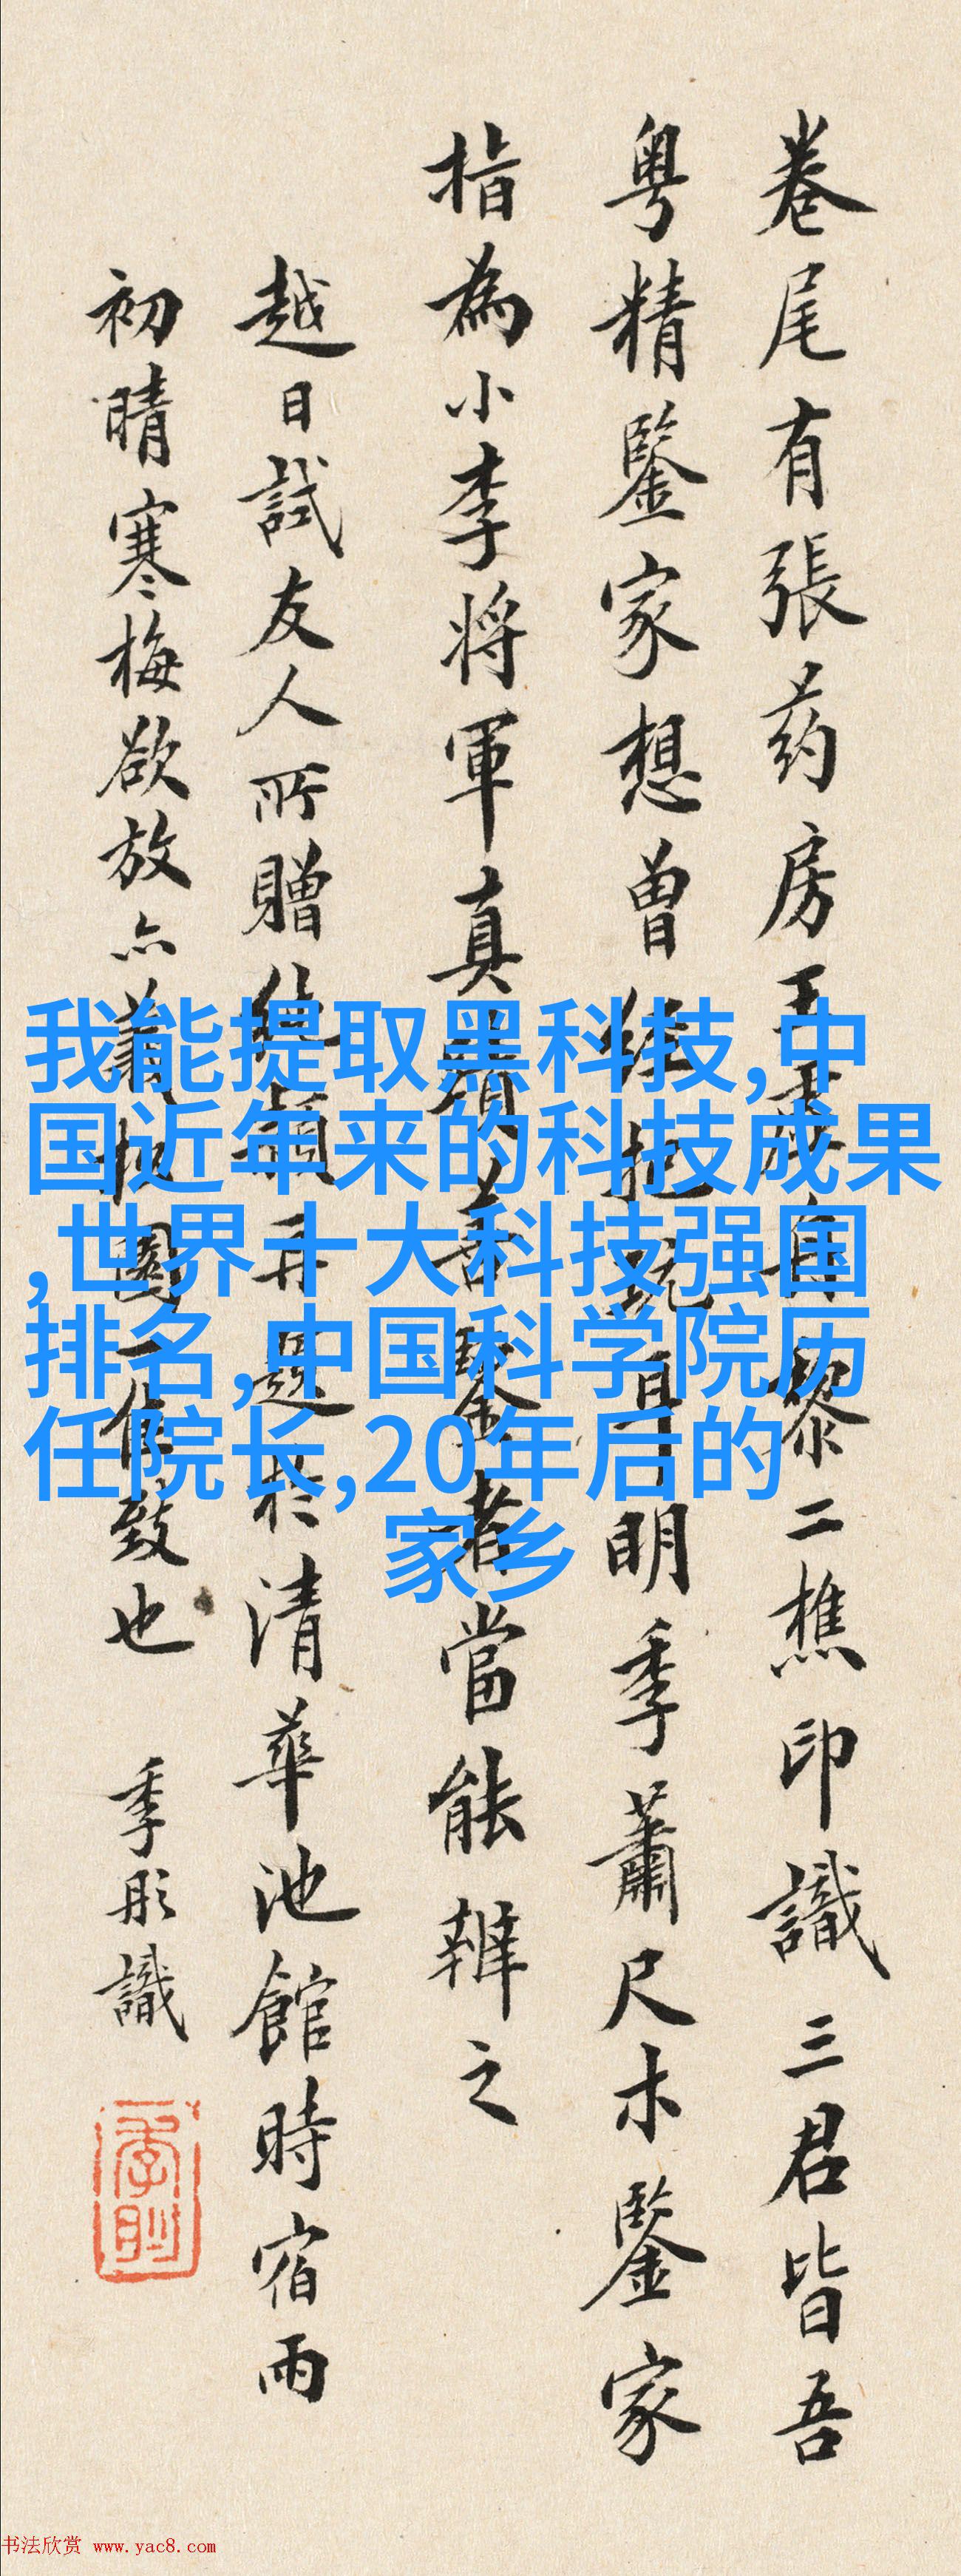 卷尾有張药房王
二樵印識三君皆吾
粤精鑒家想曾
明季蕭尺木鑒家
指為小李將軍真
當能辨之
越日試友人所贈
清華池館時宿雨
初晴寒梅欲放亦
致也
季彤識
我能提取黑科技,中
国近年来的科技成果
,世界十大科技强国
排名,中国科学院历
任院长,20年后的
家乡
书法欣赏 www.yac8.com